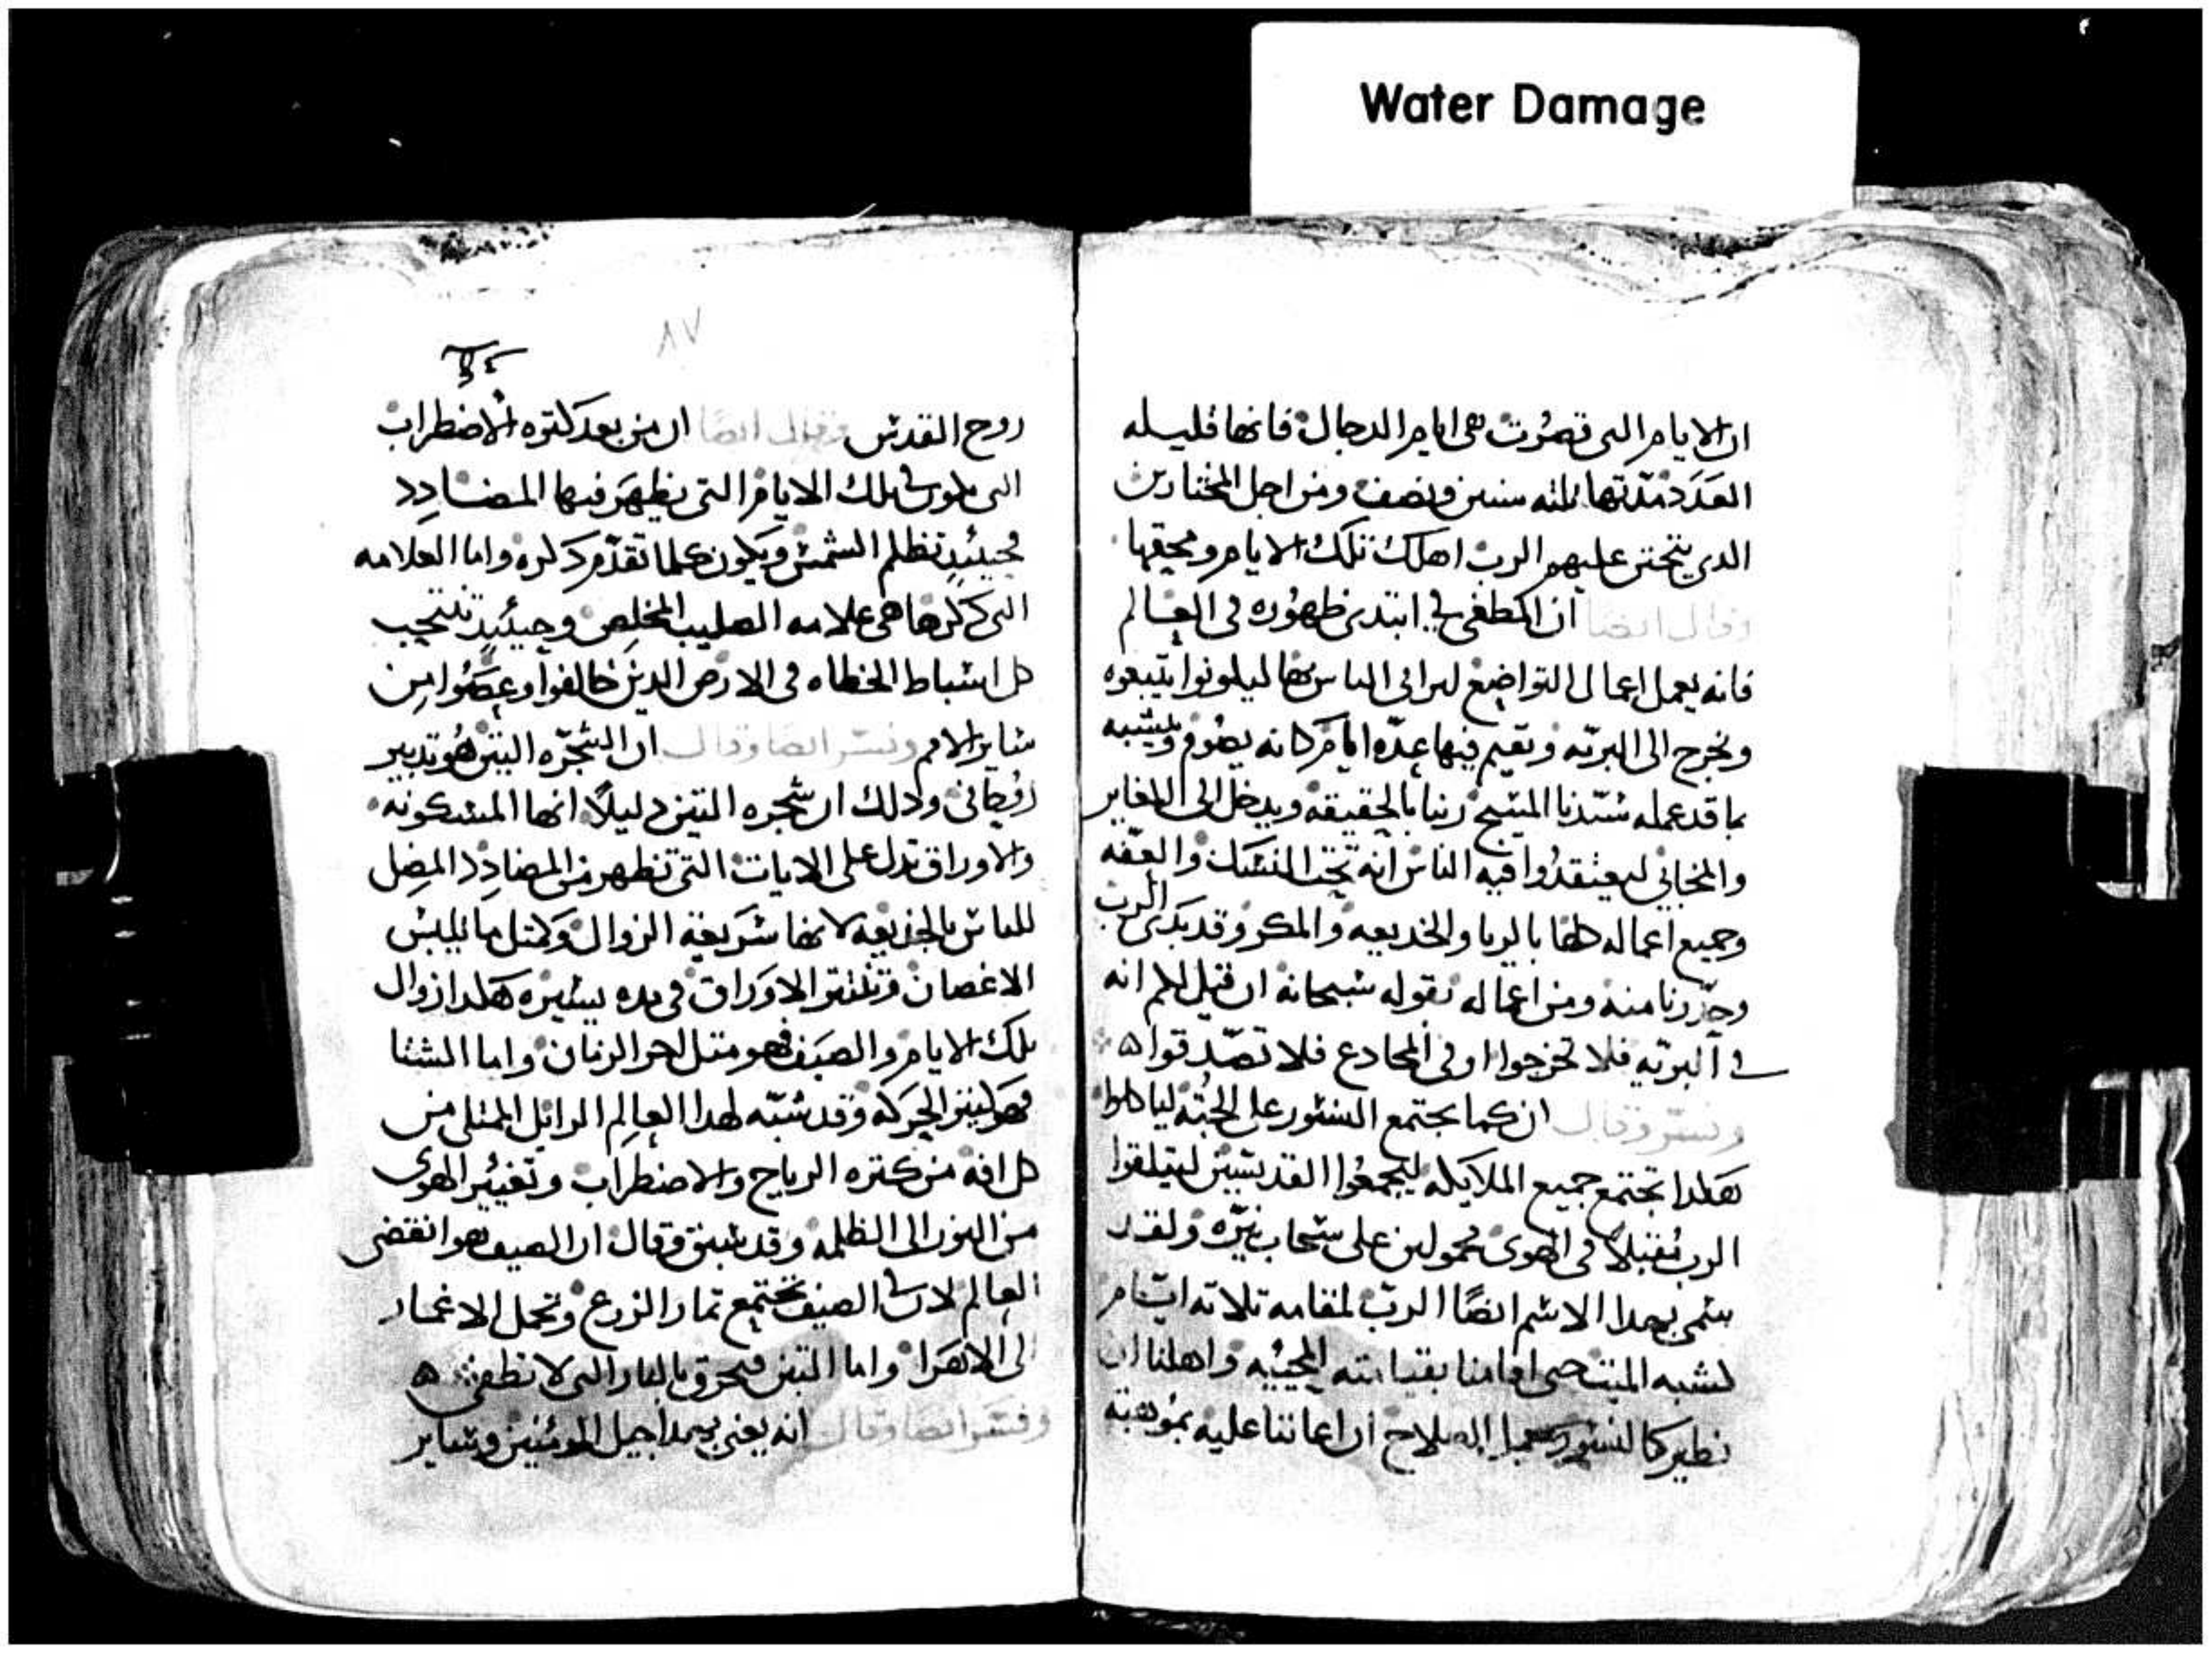 Water Damage
ان الايام التي قصرت هي ايام الدجال فانها قليله
العدد مدتها تلته سنين ونصف ومن اجل المختارين
الدي يتحنن عليهم الرب اهلك تلك الايام ومحقها
وقال ايضا ان المطغي في ابتدى ظهوره في العالم
فانه يعمل اعمال التواضع ليرايى الناس بها ليكونوا يتبعوه
ويخرج الى البريه ويقيم فيها عدّه ايام كانه يصوم ويتشبه
بما قد عمله سيّدنا المسيح ربنا بالحقيقه ويدخل الى المغاير
والمخابي ليعتقدوا فيه الناس انه تحت النسك والعفّه
وجميع اعماله كلها بالريا والخديعه والمكر وقد بدى الرب
وحدّرنا منه ومن اعماله بقوله سبحانه ان قيل لكم انه
في البريه فلا تخرجوا او في المخادع فلا تصدّقوا
وفسّر وقال ان كما يجتمع النسور على الجتّه لياكلوا
هكدا تجتمع جميع الملايكه ليجمعوا القديسين ليتلقوا
الرب مقبلاً في الهوى محمولين على سحاب نيّره ولقد
سمى بهدا الاسم ايضًا الرب لمقامه تلاته ايام
لشبه الميت حتى اقامنا بقيامته المحييه واهلنا ان
نطير كالنسور بعمل الصلاح ان اعاننا عليه بموهبة
٨٧
روح القدس وقال ايضًا ان من بعد كتره الاضطراب
التي تكون في تلك الايام التي يظهر فيها المضادد
فحينئدٍ تظلم الشمس ويكون كلما تقدّم دكره واما العلامه
التي دكرها هي علامه الصليب المخلص وحينئدٍ تنتحب
كل اسباط الخطاه في الارض الدين خالفوا وعصوا من
ساير الامم وفسر ايضا وقال ان الشجرّه التين هو تدبير
روحاني ودلك ان شجره التين دليلاً انها المسكونه
والاوراق تدل على الايات التي تظهر من المضادد المضل
للناس بالخديعه لانها سريعة الزوال وكمتل ما تيبس
الاغصان وتنتتر الاوراق في مده يسيره هكدا زوال
تلك الايام والصيف فهو متل اخر الزمان واما الشتا
فهو ليتر الحركه وقد شبّه لهدا العالم الزايل الممتلي من
كل افه من كتره الرياح والاضطراب وتغيير الهوى
من النور الى الظلمه وقد سبق وقال ان الصيف هو انقضى
العالم لان في الصيف تجتمع تمار الزرع وتحمل الاغمار
الى الاهرا واما التبن فيحرق بالنار التي لا تطفى
وفسر ايضا وقال انه يعني بهدا جيل المومنين وساير